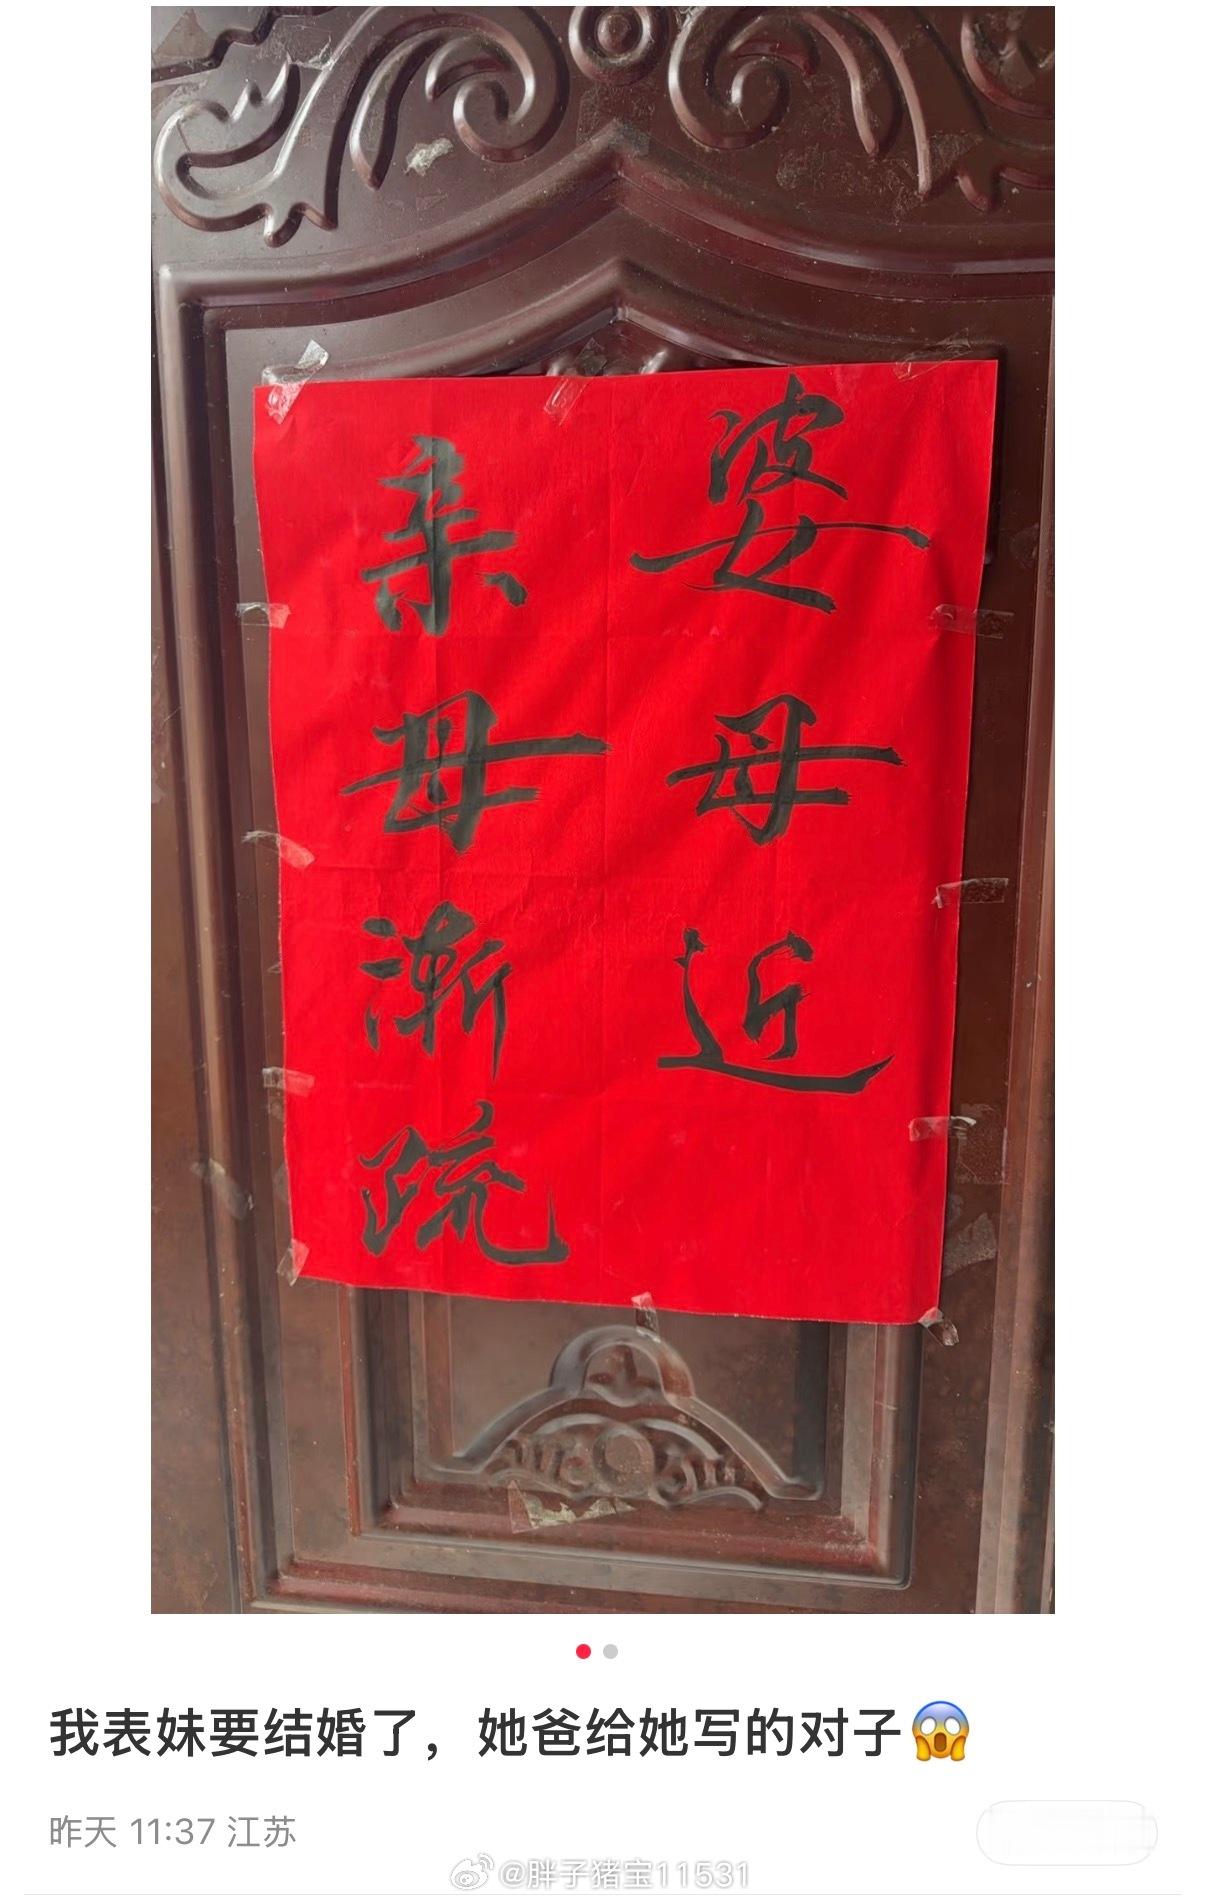 婆母近
亲母渐疏
我表妹要结婚了，她爸给她写的对子😱
昨天 11:37 江苏
@胖子猪宝11531